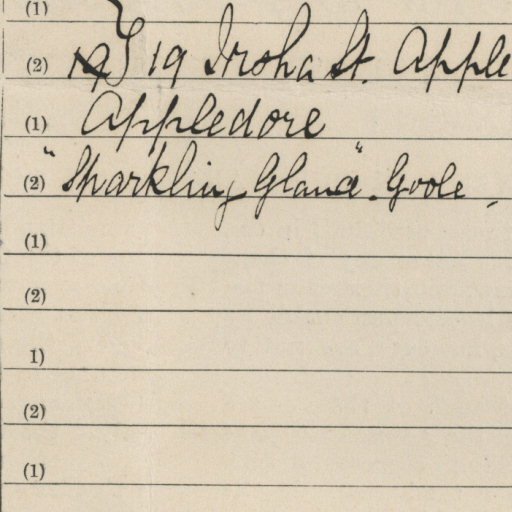 (1)
(2) 19 19 Iroha St. Apple
(1) Appledore
(2) "Sparkling Glance". Goole,
(1)
(2)
1)
(2)
(1)